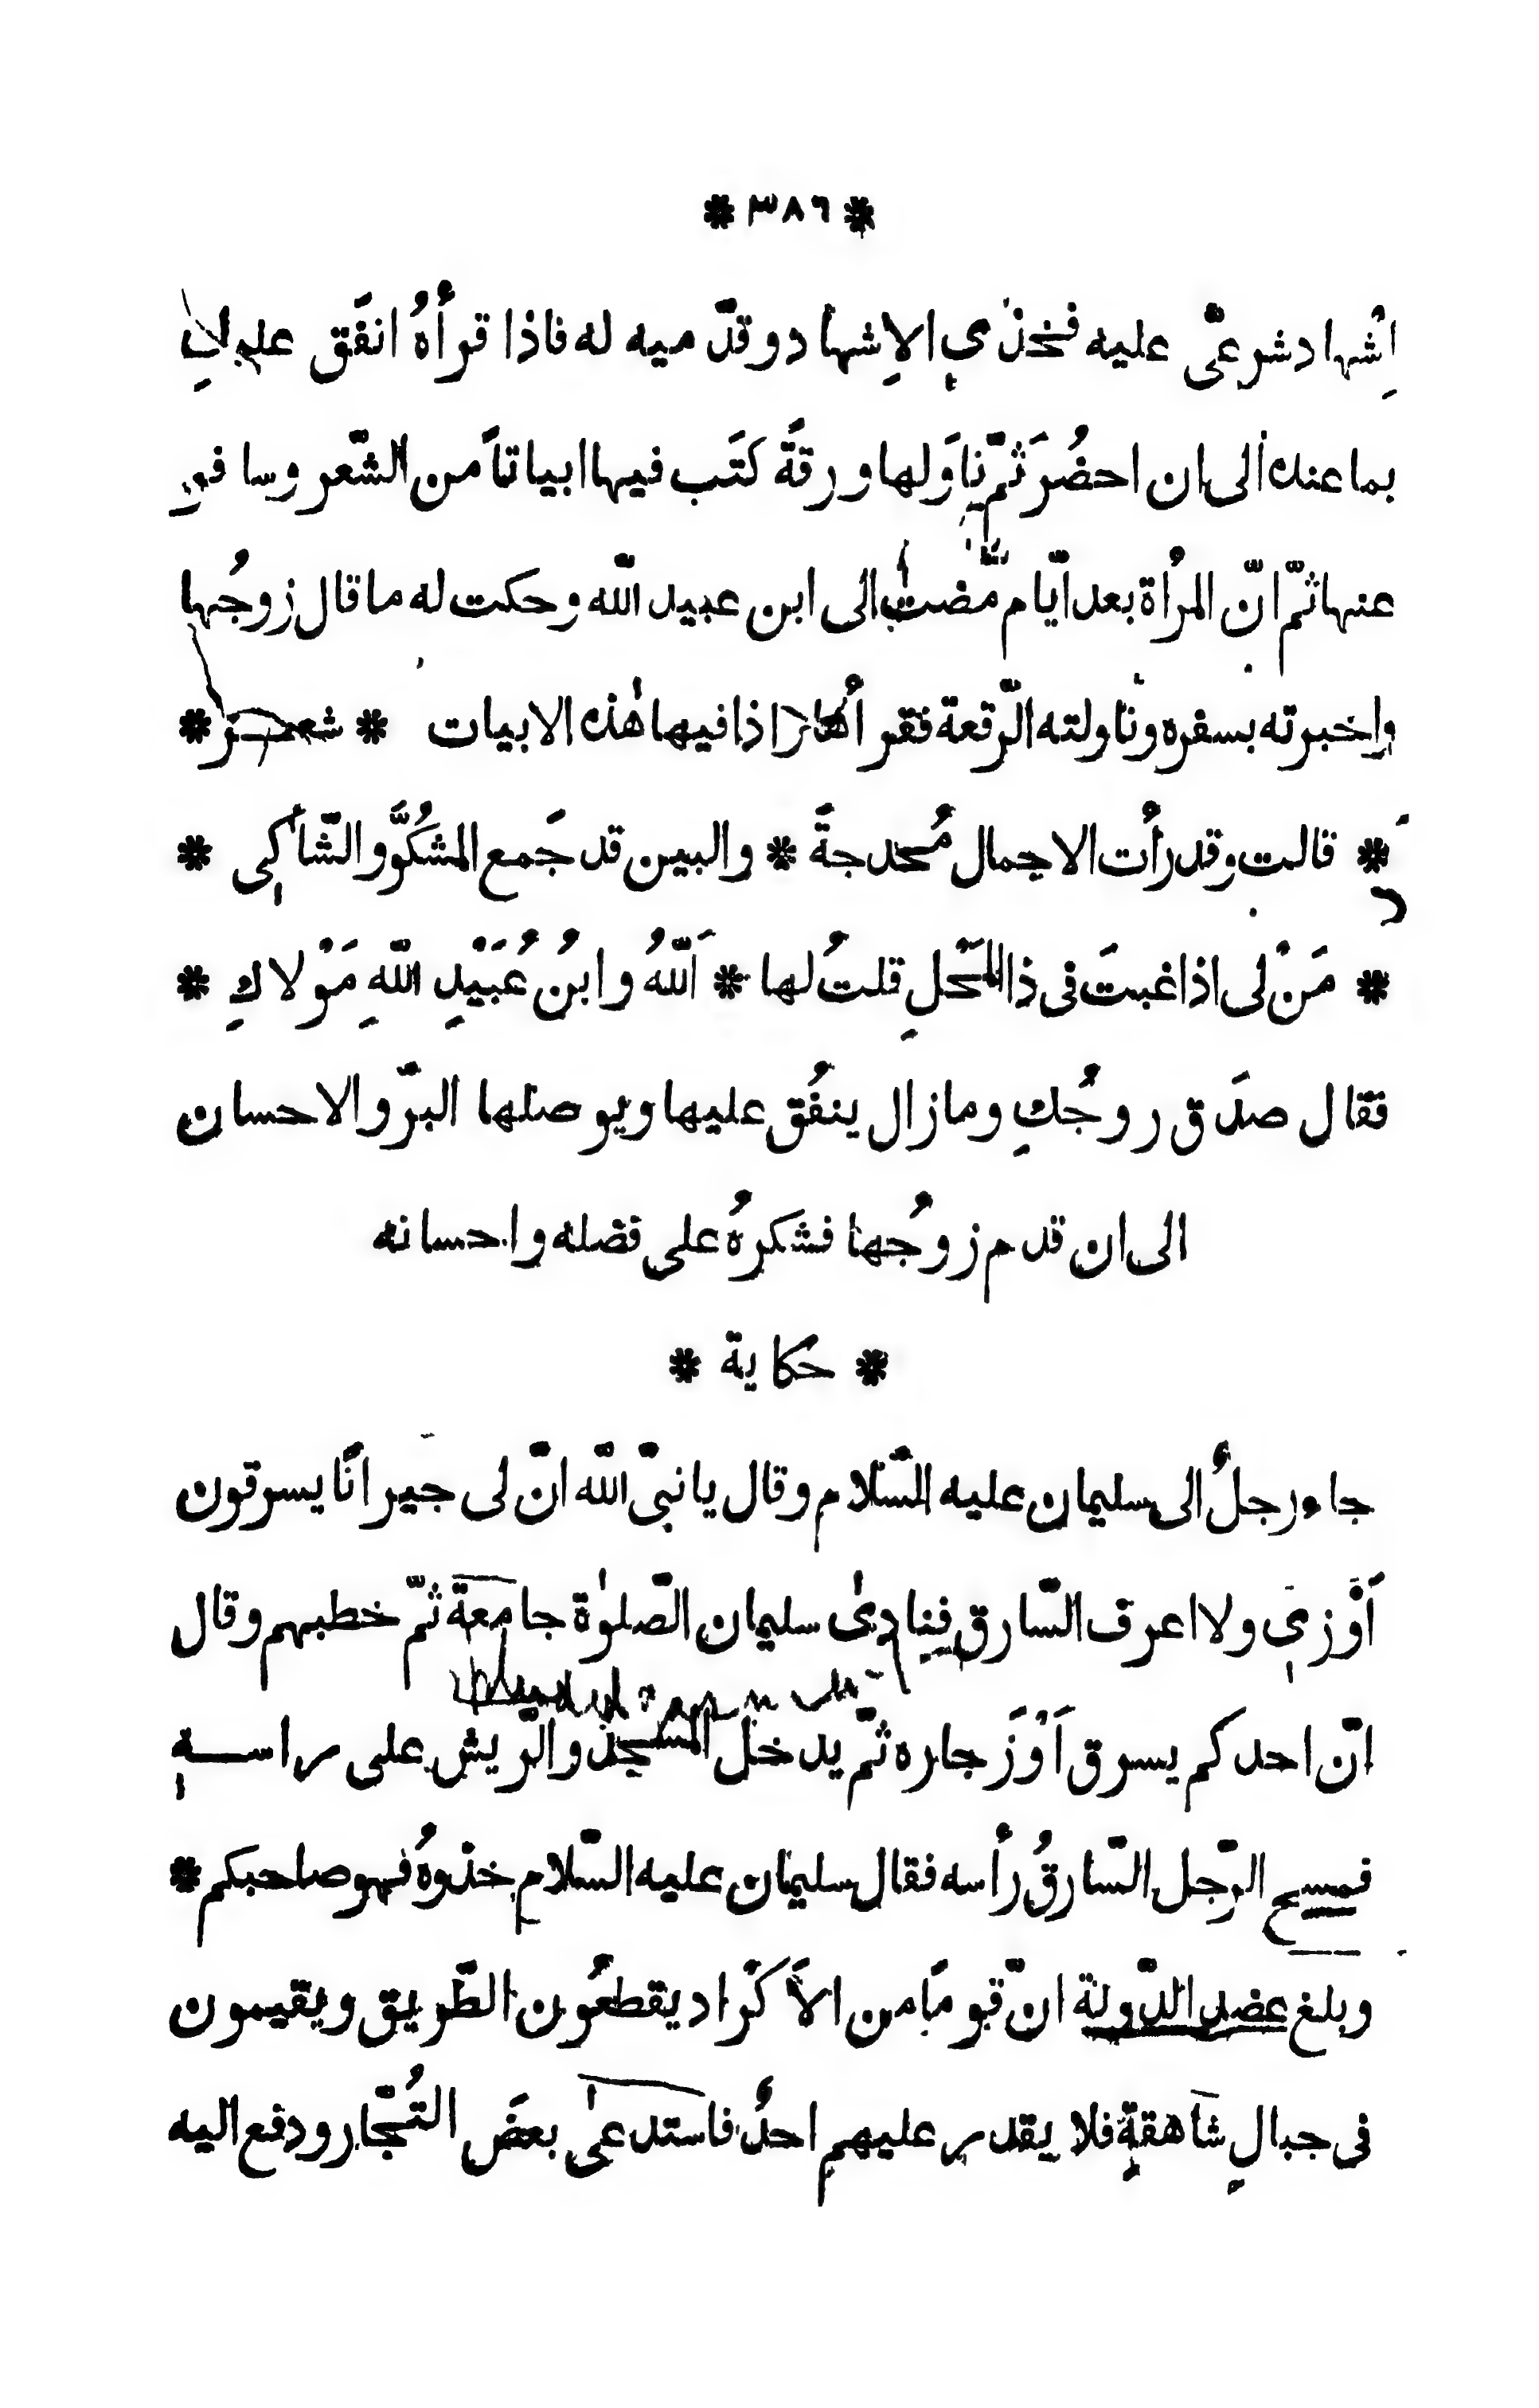 * ٣٨٦ *
اِشهاد شرعىّ عليه فخذى الاِشهاد وقدّميه له فاذا قرأهُ انفَق عليكِ
بما عنده الى ان احضُرَ ثمّ ناوَلها ورقةً كتَب فيها ابياتاً من الشّعر وسافر
عنها ثمّ انّ المرأة بعد ايّام مّضت الى ابن عبيد اللّه وحكت له ما قال زوجُها
واخبرته بسفره وناولته الرّقعة فقرأها اذا فيها هٰذه الابيات * شعر *
* قالت وقد رأت الاجمال مُحدجةً * والبين قد جَمع المشكُوَّ والشّاكِى *
* مَنْ لى اذا غبتَ فى ذا المَحْلِ قلتُ لها * اَللّهُ وابنُ عُبَيْدِ اللّهِ مَوْلاكِ *
فقال صدَق زوجُكِ ومازال ينفُق عليها ويوصلها البرّ والاحسان
الى ان قدم زوجُها فشكرهُ على فضله واحسانه
* حكاية *
جاء رجلٌ الى سليمان عليه السّلام وقال يا نبىّ اللّه انّ لى جيرانًا يسرقون
اَوَّزى ولا اعرف السّارق فنادىٰ سليمان الصّلوٰة جامعة ثمّ خطبهم وقال
انّ احدكم يسرق اَوْزَ جاره ثمّ يدخل المسجد والرّيش على راسهِ
فمسح الرّجل السّارقُ رأسه فقال سليمان عليه السّلام خذوهُ فهو صاحبكم *
وبلغ عضد الدّولة انّ قومًا من الاَكْراد يقطعُون الطّريق ويقيمون
فى جبالٍ شاهقةٍ فلا يقدر عليهم احدٌ فاستدعىٰ بعضَ التُجّار ودفع اليه